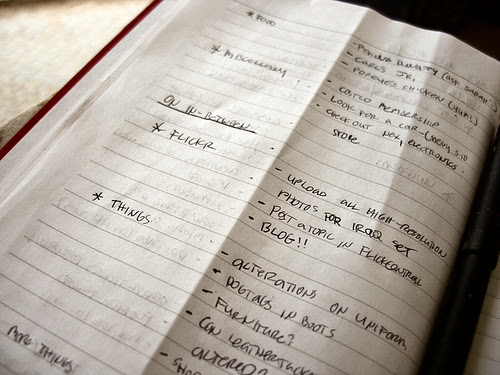 * FOOD
- PEKING DYNASTY (ASK SARAH)
- CARL'S JR.
- POPEYE'S CHICKEN (YUM!)
* MISCELLANY
- COSTCO MEMBERSHIP
- LOOK FOR A CAR
- CHECK OUT NEX, ELECTRONICS
STORE
ON IN-BETWEEN
* FLICKR
- UPLOAD ALL HIGH-RESOLUTION
PHOTOS FOR IRAQ SET
- POST A TOPIC IN FLICKRCENTRAL
- BLOG!!
* THINGS
- ALTERATIONS ON UNIFORM
- DOGTAGS IN BOOTS
- FURNITURE?
- CAN LEATHERJACKET
ALTERED?
MORE THINGS